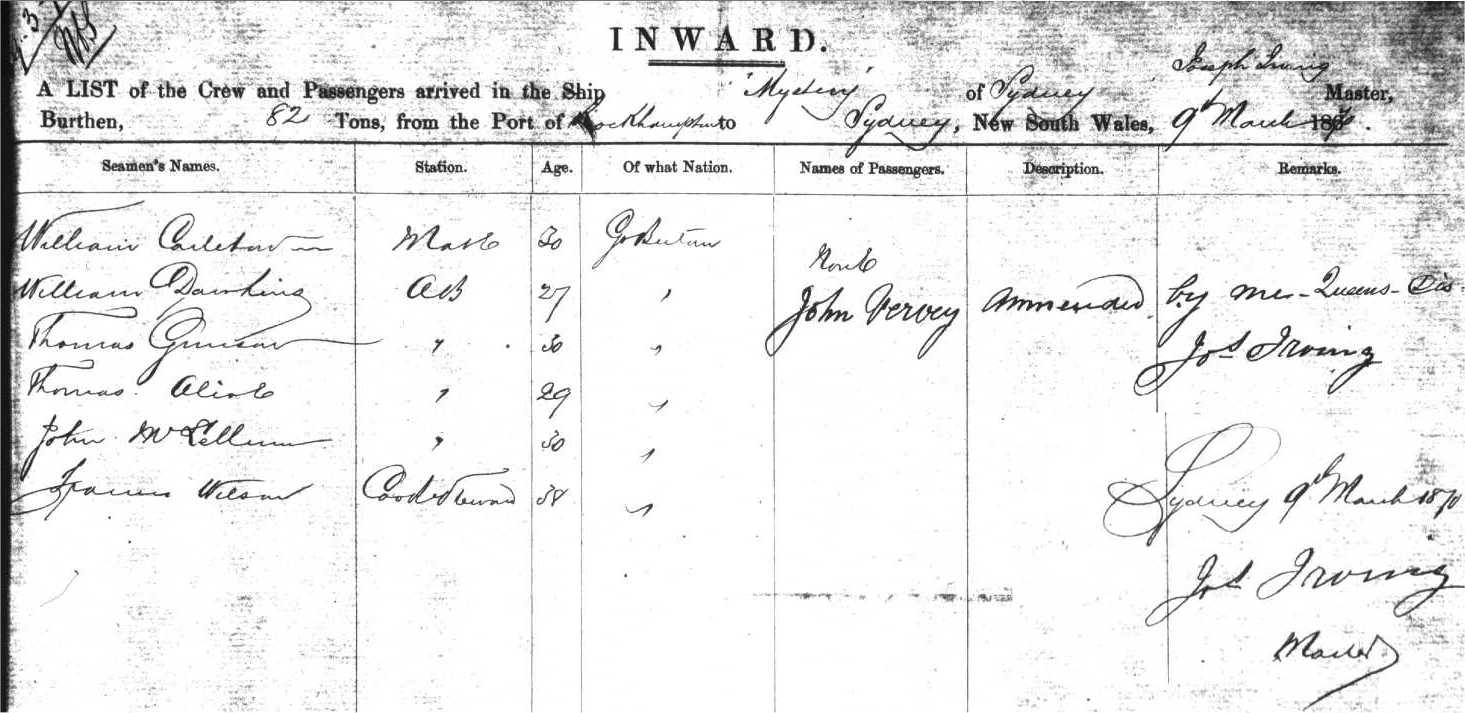 INWARD.
A LIST of the Crew and Passengers arrived in the Ship "Mystery" of Sydney Joseph Irving Master,
Burthen, 82 Tons, from the Port of Rockhampton to Sydney, New South Wales, 9th March 1870.
Seamen's Names. Station. Age. Of what Nation. Names of Passengers. Description. Remarks.
William Carleton Mate 30 Gt Britain
None
William Dawking AB 27 "
John Vervey Ammended by me - Queens - 
Thomas " 30 "
Jos Irving
Thomas " 29 "
John McLellum " 30 "
Francis Wilson Cook & Steward 38 "
Sydney 9th March 1870
Jos Irving
Master